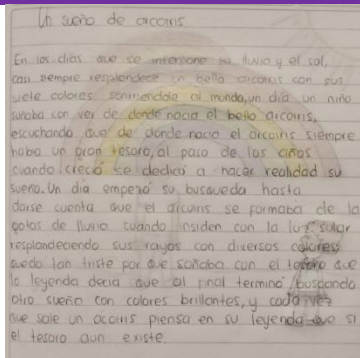 Un sueño de arcoiris
En los días que se interpone la lluvia y el sol,
casi siempre resplandece un bello arcoiris con sus
siete colores sonriendole al mundo, un día un niño
soñaba con ver de donde nacia el bello arcoiris,
escuchando que de donde nacio el arcoiris siempre
habia un gran tesoro, al paso de los años
cuando creció se dedicó a hacer realidad su
sueño. Un día empezó su busqueda hasta
darse cuenta que el arcoiris se formaba de la
gotas de lluvia cuando insiden con la luz solar
resplandeciendo sus rayos con diversos colores
quedo tan triste por que soñaba con el tesoro que
la leyenda decia que al final terminó buscando
otro sueño con colores brillantes, y cada vez
que sale un arcoiris piensa en su leyenda que si
el tesoro aun existe.